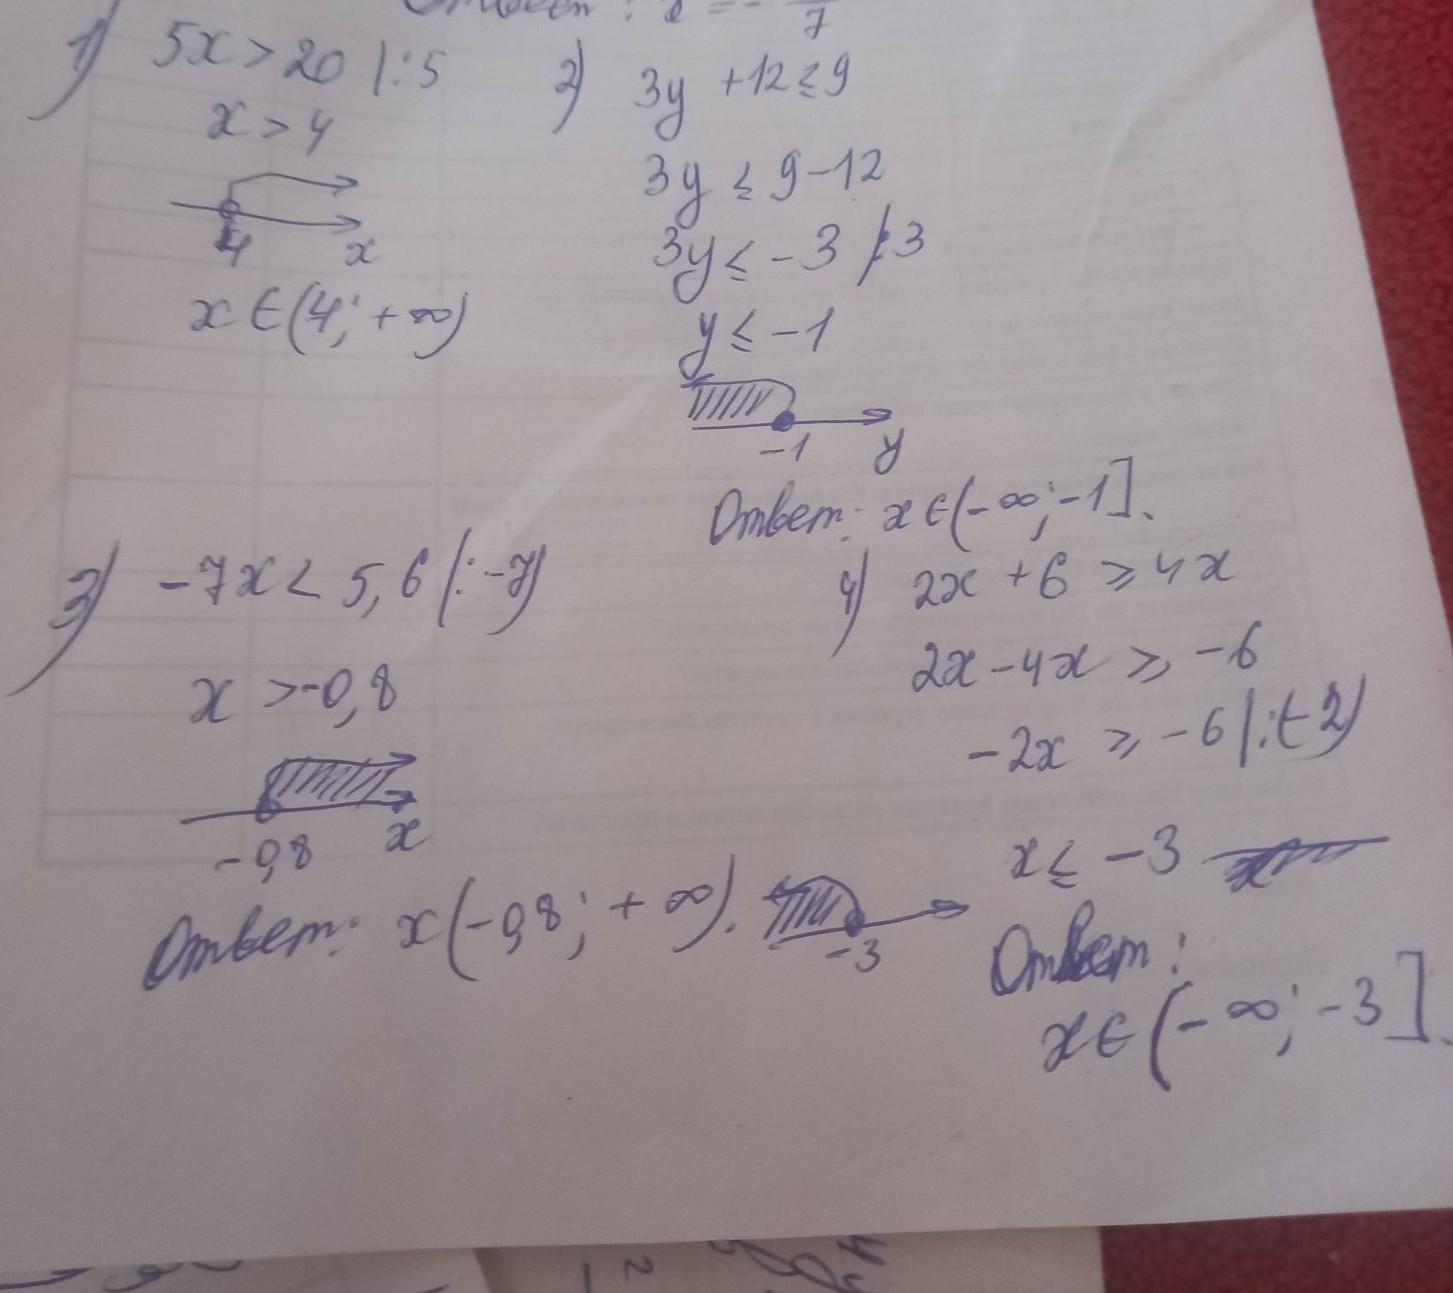 Ответ: x = - 7
1) 5x > 20 |:5
x > 4
4 x
x ∈ (4; +∞)
2) 3y + 12 ≤ 9
3y ≤ 9-12
3y ≤ -3 |:3
y ≤ -1
-1 y
Ответ: x ∈ (-∞; -1].
3) -7x < 5,6 |: -7)
x > -0,8
-0,8 x
Ответ: x (-0,8; +∞).
4) 2x + 6 ⩾ 4x
2x - 4x ⩾ -6
-2x ⩾ -6 |:(-2)
x ≤ -3
-3
Ответ:
x ∈ (-∞; -3].